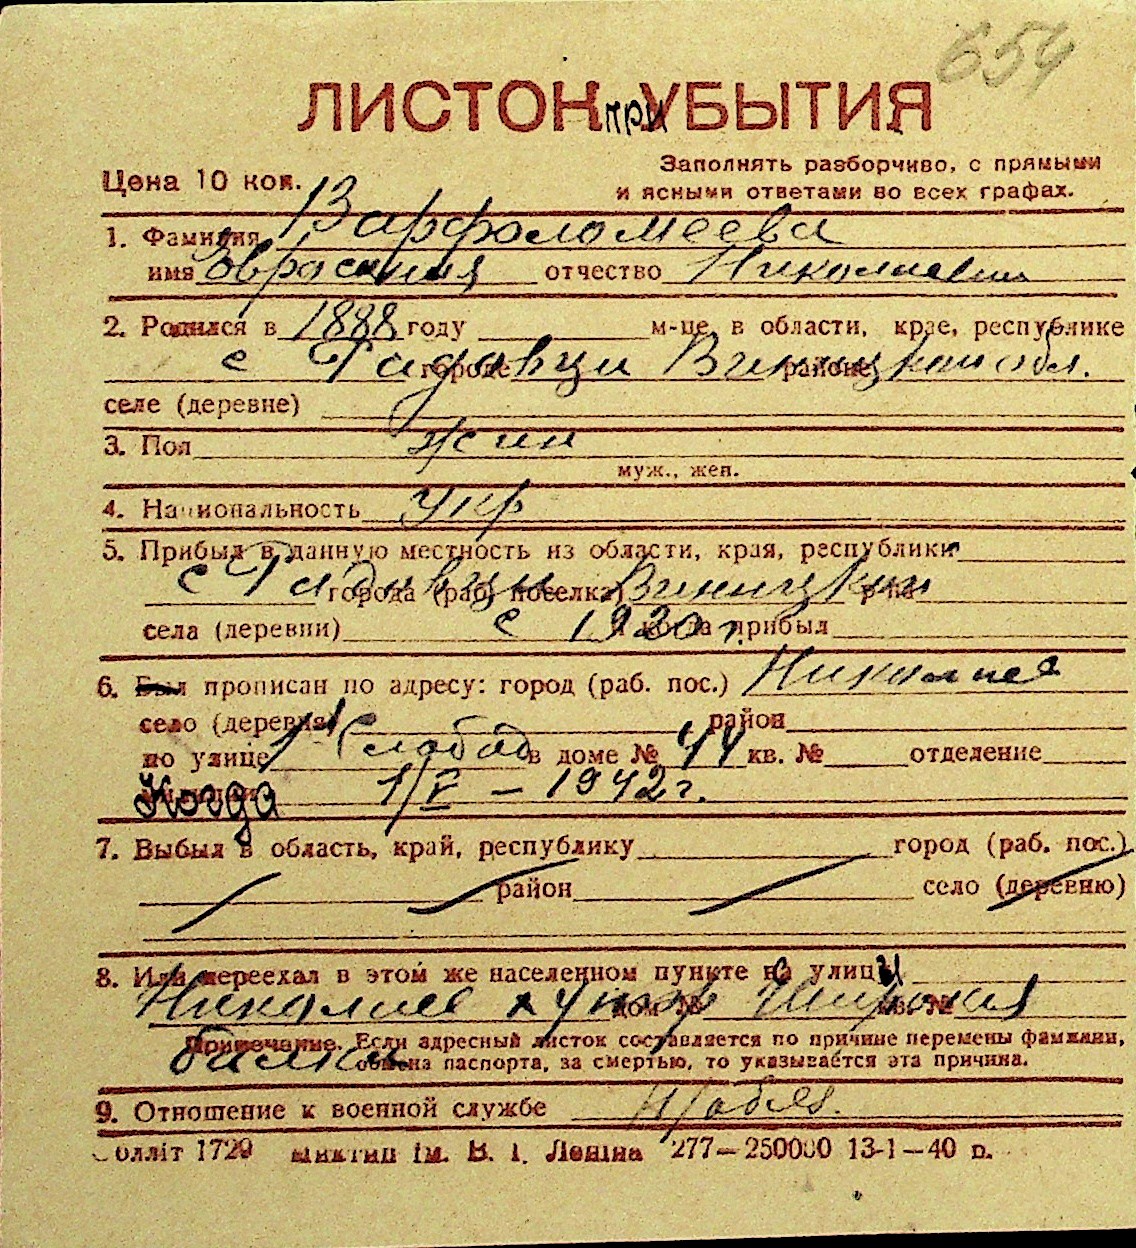 654
ЛИСТОК при УБЫТИЯ
Цена 10 коп.
Заполнять разборчиво, с прямыми
и ясными ответами во всех графах.
1. Фамилия Варфоломеева
имя отчество
2. Родился в 1888 году м-це, в области, крае, республике
с городе районе обл.
селе (деревне)
3. Пол жин
муж., жен.
4. Национальность укр
5. Прибыл в данную местность из области, края, республики
с города (раб. поселка) р-на
села (деревни) с 1920 г. и когда прибыл
6. Был прописан по адресу: город (раб. пос.) Николаев
село (деревня) район
по улице Слобод в доме № 44 кв. № отделение
Когда 1/V – 1942 г.
7. Выбыл в область, край, республику город (раб. пос.)
район село (деревню)
8. Или переехал в этом же населенном пункте на улицу
Николаев хутор дом № Широкая кв. №
балка
Примечание. Если адресный листок составляется по причине перемены фамилии,
обмена паспорта, за смертью, то указывается эта причина.
9. Отношение к военной службе н/обяз.
Голліт 1729 ім. В. І. Леніна 277—250000 13-1—40 р.